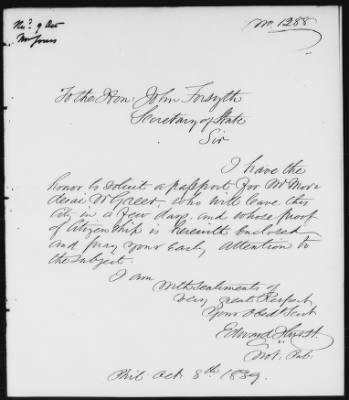 No 1288
To the Hon John Forsyth
Secretary of State
Sir
I have the
honor to solicit a passport for Mr Mor
decai W Greer, who will leave this
City in a few days. and whose proof
of Citizenship is herewith Enclosed
and pray your Early attention to
the subject.
I am
With Sentiments of
very great Respect
Your Obedt Servt
Edward Hurst
Not. Pub.
Phil Oct 8th 1839.